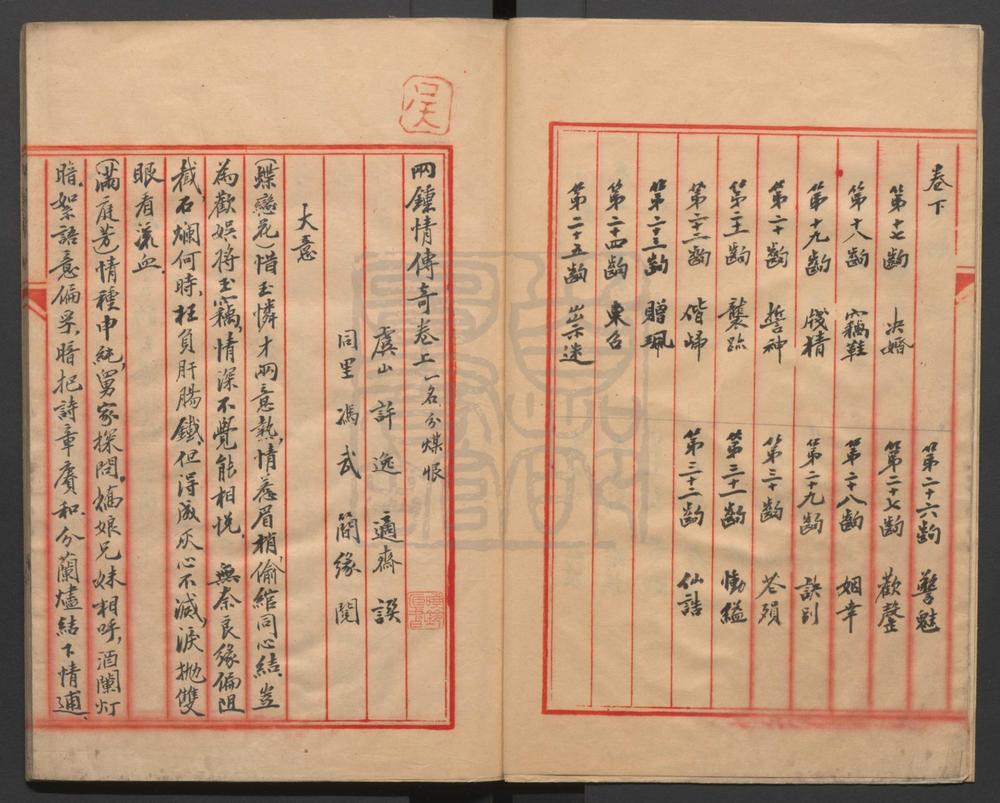 卷下
第十七齣 决婚
第十八齣 竊鞋
第十九齣 牋積
第二十齣 誓神
第二十一齣 襲跡
第二十二齣 偕歸
第二十三齣 贈珮
第二十四齣 東召
第二十五齣 祟迷
第二十六齣 警魅
第二十七齣 歡鏧
第二十八齣 姻幸
第二十九齣 訣別
第三十齣 茖殞
第三十一齣 慟縊
第三十二齣 仙誥
兩鍾情傳奇卷上 一名分煤恨
虞山 許逸 適齋 譔
同里 馮武 簡緣 閱
大意
(蝶戀花)惜玉憐才兩意熱,情惹眉梢,偷綰同心結,豈
為歡娛將玉竊,情深不覺能相悅, 無奈良緣偏阻
截,石爛何時,枉負肝腸鐵,但得成灰心不滅,淚抛雙
眼看流血.
(滿庭芳)情種申純,舅家探問,嬌娘兄妹相呼,酒闌灯
暗,絮語意偏孚,暗把詩章賡和,分蘭燼結下情逋,